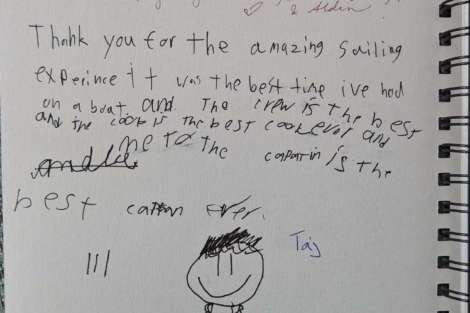 & Aldin
Thank you for the amazing sailing
experince it was the best time ive had
on a boat and The crew is the best
and the cook is the best cook ever and
me to the capatin is the
best ever.
Taj